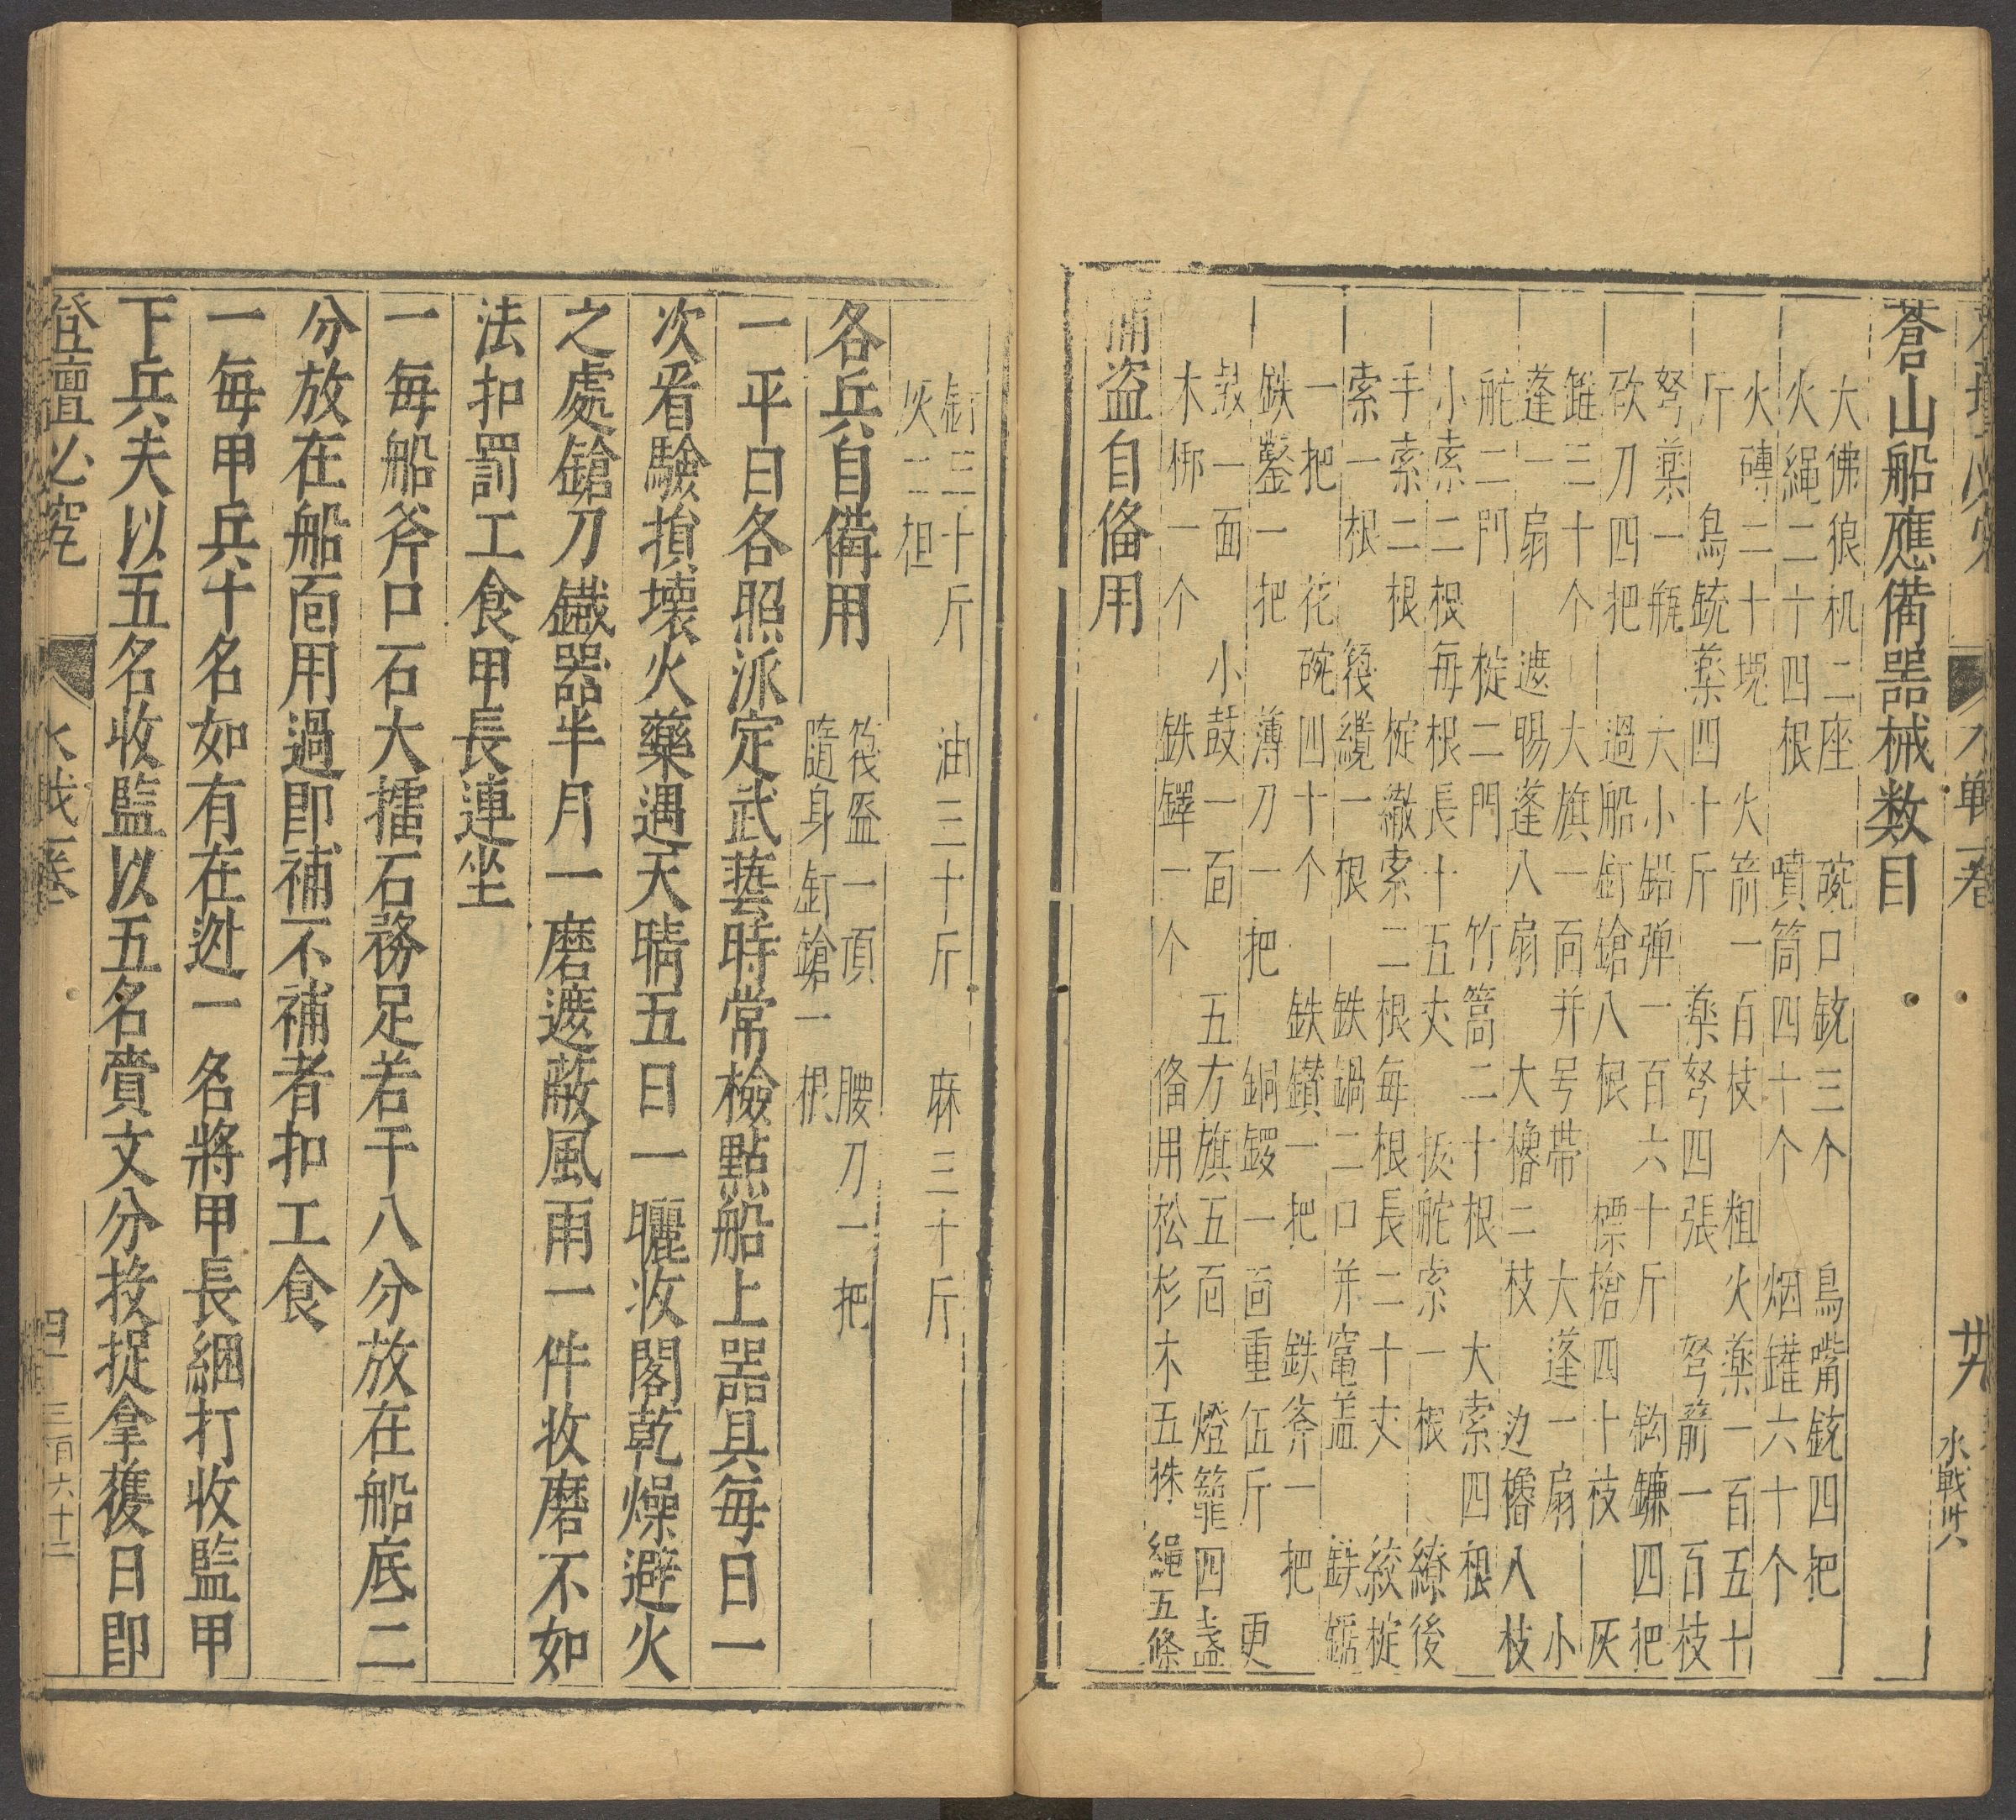 水戰卷
廿九
水戰卅六
蒼山船應備器械数目
大佛狼机二座 碗口銃三个 鳥嘴銃四把
火繩二十四根 噴筒四十个 烟罐六十个
火磚二十塊 火箭一百枝 粗火藥一百五十
斤 鳥銃藥四十斤 藥弩四張 弩箭一百枝
弩藥一瓶 大小鉛弹一百六十斤 鈎鐮四把
砍刀四把 過船釘鎗八根 標槍四十枝 灰
鑵三十个 大旗一面并号带 大蓬一扇 小
蓬一扇 遮暘蓬八扇 大櫓二枝 边櫓八枝
舵二門 椗二門 竹篙二十根 大索四根
小索二根每根長十五丈 扳舵索一根 繚後
手索二根 椗繳索二根每根長二十丈 絞椗
索一根 篾纜一根 鉄鍋二口并竃盖 鉄鋸
一把 花碗四十个 鉄鑚一把 鉄斧一把
鉄鑿一把 薄刀一把 銅鑼一面重伍斤 更
鼓一面 小鼓一面 五方旗五面 燈籠四盞
木梆一个 鉄鐸一个 備用松杉木五株 繩五條
捕盗自俻用
釘三十斤 油三十斤 麻三十斤
灰二担
各兵自備用
筏盔一頂 腰刀一把
隨身釘鎗一根
一平日各照派定武藝時常檢點船上器具每日一
次看驗損壞火藥遇天晴五日一曬收閣乾燥避火
之處鎗刀鐵器半月一磨遮蔽風雨一件收磨不如
法扣罰工食甲長連坐
一每船斧口石大擂石務足若干八分放在船底二
分放在船面用過即補不補者扣工食
一每甲兵十名如有在迯一名將甲長綑打收監甲
下兵夫以五名收監以五名賫文分投捉拿獲日即
登壇必究
水戰卷
四
三百六十二